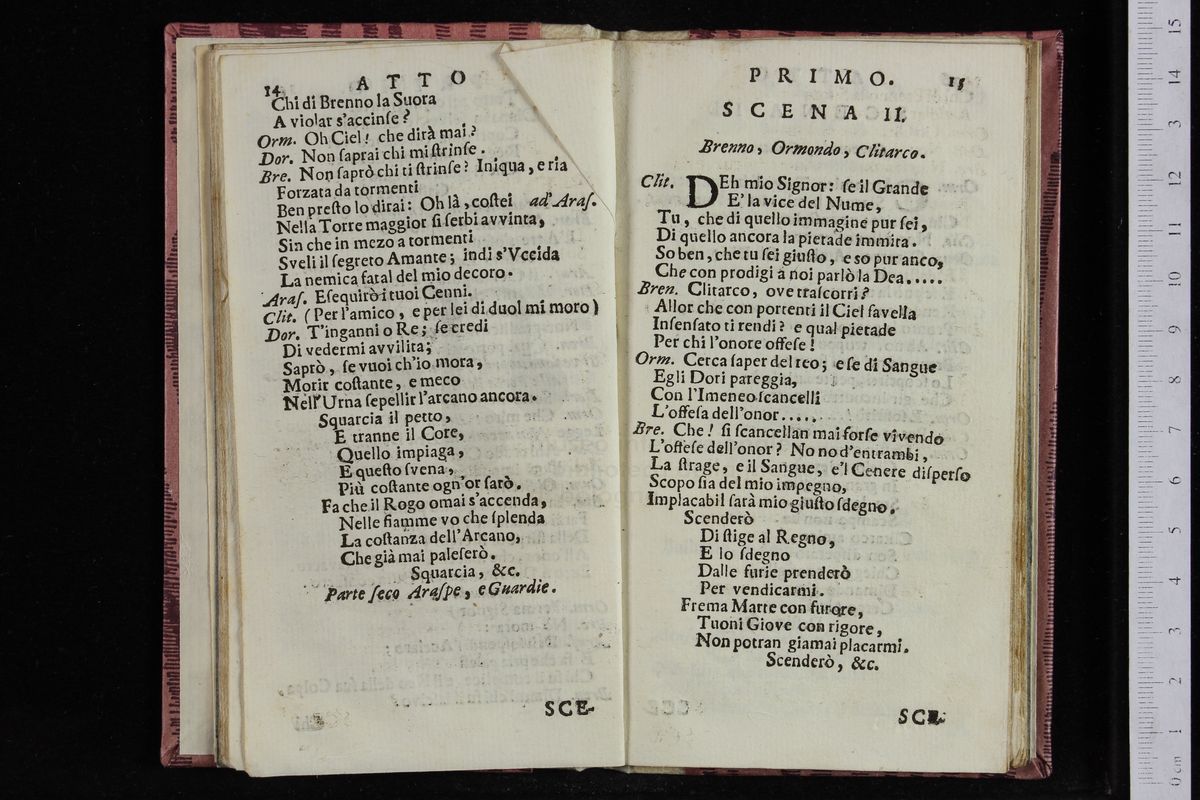 14 ATTO
Chi di Brenno la Suora
A violar s'accinſe?
Orm. Oh Ciel! che dirà mai?
Dor. Non ſaprai chi mi ſtrinſe.
Bre. Non ſaprò chi ti ſtrinſe? Iniqua, e ria
Forzata da tormenti
Ben preſto lo dirai: Oh là, coſtei ad' Araſ.
Nella Torre maggior ſi ſerbi avvinta,
Sin che in mezo a tormenti
Sveli il ſegreto Amante; indi s'Vccida
La nemica fatal del mio decoro.
Araſ. Eſequirò i tuoi Cenni.
Clit. (Per l'amico, e per lei di duol mi moro)
Dor. T'inganni o Re; ſe credi
Di vedermi avvilita;
Saprò, ſe vuoi ch'io mora,
Morir coſtante, e meco
Nell'Urna ſepellir l'arcano ancora.
Squarcia il petto,
E tranne il Core,
Quello impiaga,
E queſto ſvena,
Più coſtante ogn'or ſarò.
Fa che il Rogo omai s'accenda,
Nelle fiamme vo che ſplenda
La coſtanza dell'Arcano,
Che già mai paleſerò.
Squarcia, &c.
Parte ſeco Araſpe, e Guardie.
SCE-
PRIMO. 15
SCENA II.
Brenno, Ormondo, Clitarco.
Clit. DEh mio Signor: ſe il Grande
E' la vice del Nume,
Tu, che di quello immagine pur ſei,
Di quello ancora la pietade immita.
So ben, che tu ſei giuſto, e so pur anco,
Che con prodigi a noi parlò la Dea.....
Bren. Clitarco, ove traſcorri?
Allor che con portenti il Ciel favella
Inſenſato ti rendi? e qual pietade
Per chi l'onore offeſe!
Orm. Cerca ſaper del reo; e ſe di Sangue
Egli Dori pareggia,
Con l'Imeneo ſcancelli
L'offeſa dell'onor.....
Bre. Che! ſi ſcancellan mai forſe vivendo
L'offeſe dell'onor? No no d'entrambi,
La ſtrage, e il Sangue, e'l Cenere diſperſo
Scopo ſia del mio impegno,
Implacabil ſarà mio giuſto ſdegno.
Scenderò
Di ſtige al Regno,
E lo ſdegno
Dalle furie prenderò
Per vendicarmi.
Frema Marte con furore,
Tuoni Giove con rigore,
Non potran giamai placarmi.
Scenderò, &c.
SCE-